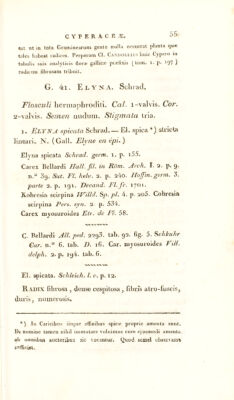 CYPERACEÆ. 55
est ut in tota Graminearum gente nulla noscatur planta quæ
tales habeat radices. Præparam Cl. CANDOLLIUS huic Cypero in
tabulis suis analyticis floræ gallicæ præfixis (tom. 1. p. 197)
radicem fibrosam tribuit.
G. 41. ELYNA. Schrad.
Flosculi hermaphroditi. Cal. 1-valvis. Cor.
2-valvis. Semen nudum. Stigmata tria.
1. ELYNA spicata Schrad. — El. spica *) stricta
lineari. N. (Gall. Elyne en épi.)
Elyna spicata Schrad. germ. 1. p. 155.
Carex Bellardi Hall. fil. in Röm. Arch. I. 2. p. 9.
n.° 39. Sut. Fl. helv. 2. p. 240. Hoffm. germ. 3.
parte 2. p. 191. Decand. Fl. fr. 1701.
Kobresia scirpina Willd. Sp. pl. 4. p. 205. Cobresia
scirpina Pers. syn. 2. p. 534.
Carex myosuroides Etr. de Fl. 58.
C. Bellardi All. ped. 2293. tab. 92. fig. 5. Schkuhr
Car. n.° 6. tab. D. 16. Car. myosuroides Vill.
delph. 2. p. 194. tab. 6.
El. spicata. Schleich. l. c. p. 12.
RADIX fibrosa, dense cespitosa, fibris atro-fuscis,
duris, numerosis.
*) In Caricibus iisque affinibus spicæ proprie amenta sunt.
De nomine tamen nihil immutare volentes cum ejusmodi amenta
ab omnibus auctoribus sic vocentur. Quod semel observasse
sufficiat.